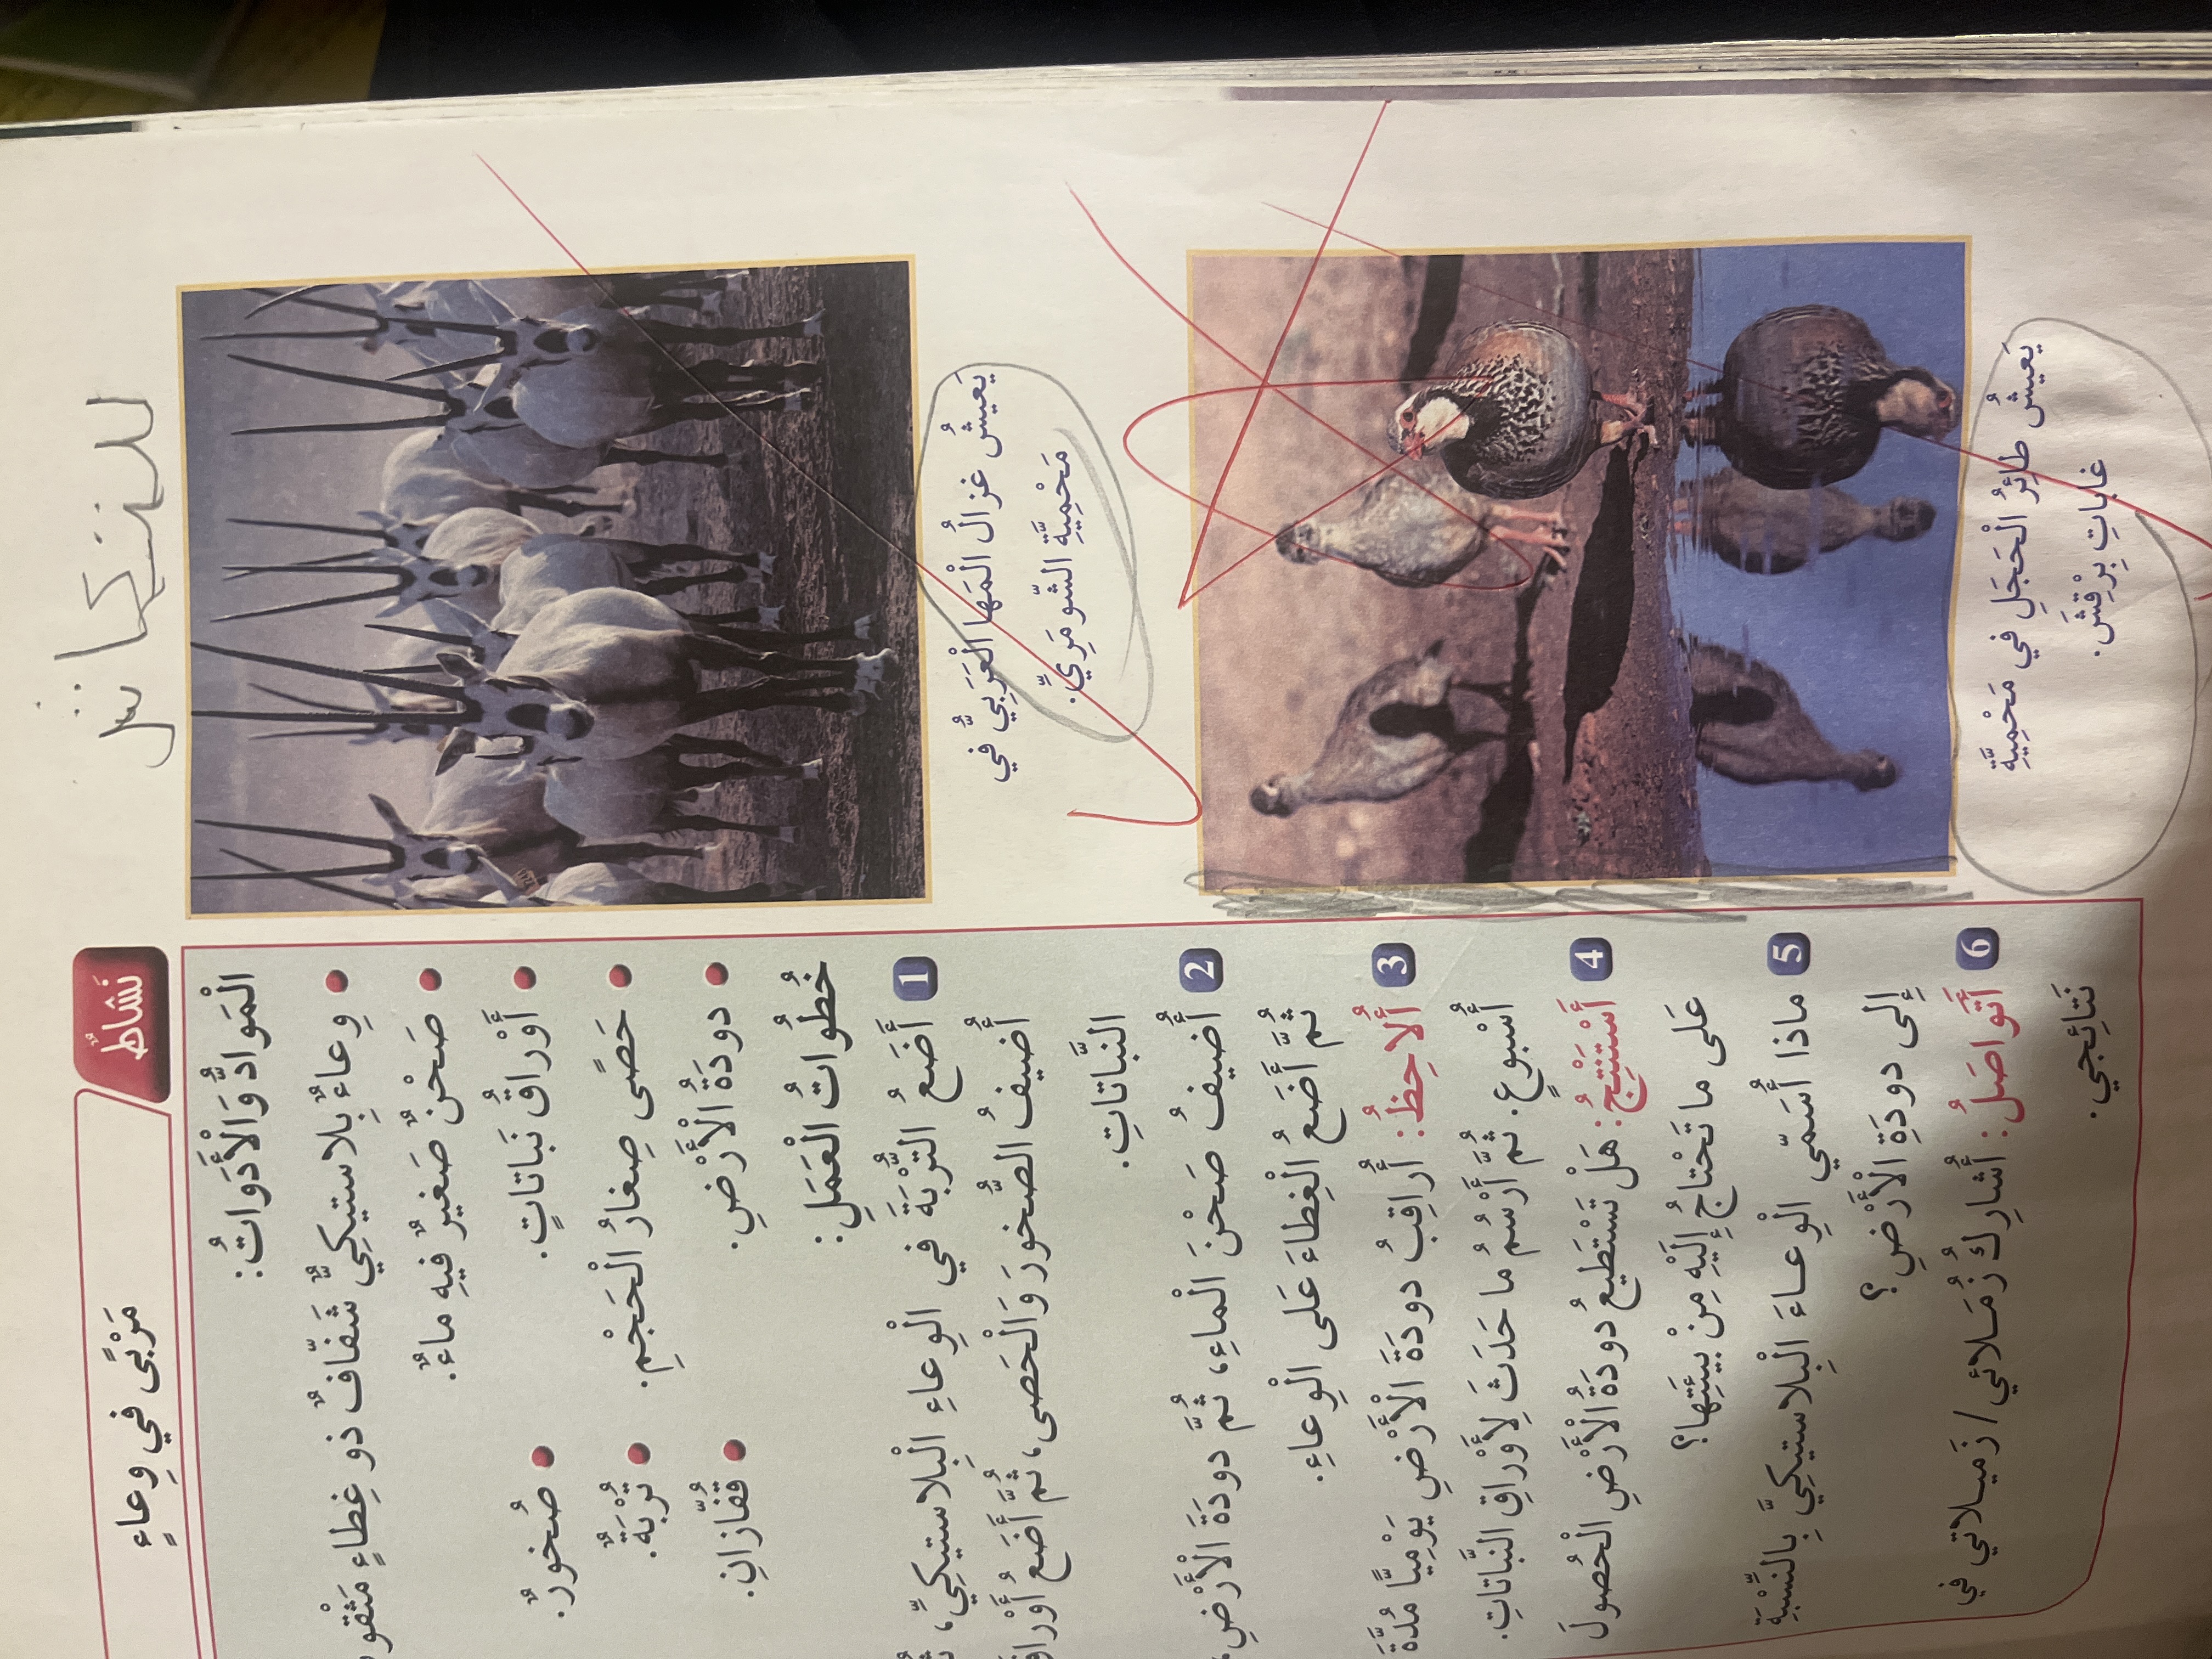 نَشاطٌ
مَرْبًى في وِعاءٍ
الْمَوادُّ وَالْأَدَواتُ:
وِعاءٌ بِلاستيكِيٌّ شَفّافٌ ذو غِطاءٍ
صَحْنٌ صَغيرٌ فيهِ ماءٌ.
أَوْراقُ نَباتاتٍ.
صُخورٌ.
حَصًى صِغارُ الْحَجْمِ.
تُرْبَةٌ.
دودَةُ الْأَرْضِ.
قُفّازانِ.
خُطُواتُ الْعَمَلِ:
1 أَضَعُ التُّرْبَةَ في الْوِعاءِ الْبِلاستيكِيِّ،
أُضيفُ الصُّخورَ وَالْحَصى، ثُمَّ أَضَعُ
النَّباتاتِ.
2 أُضيفُ صَحْنَ الْماءِ، ثُمَّ دودَةَ الْأَرْضِ،
ثُمَّ أَضَعُ الْغِطاءَ عَلى الْوِعاءِ.
3 أُلاحِظُ: أُراقِبُ دودَةَ الْأَرْضِ يَوْمِيًّا مُدَّةَ
أُسْبوعٍ. ثُمَّ أَرْسُمُ ما حَدَثَ لِأَوْراقِ النَّباتاتِ.
4 أَسْتَنْتِجُ: هَلْ تَسْتَطيعُ دودَةُ الْأَرْضِ الْحُصولَ
عَلى ما تَحْتاجُ إِلَيْهِ مِنْ بيئَتِها؟
5 ماذا أُسَمّي الْوِعاءَ الْبِلاستيكِيَّ بِالنِّسْبَةِ
إِلى دودَةِ الْأَرْضِ؟
6 أَتَواصَلُ: أُشارِكُ زُمَلائي/ زَميلاتي في
نَتائِجي.
يَعيشُ غَزالُ الْمَها الْعَرَبِيُّ في
مَحْمِيَّةِ الشّومَرِيِّ.
يَعيشُ طائِرُ الْحَجَلِ في مَحْمِيَّةِ
غاباتِ بِرْقِشَ.